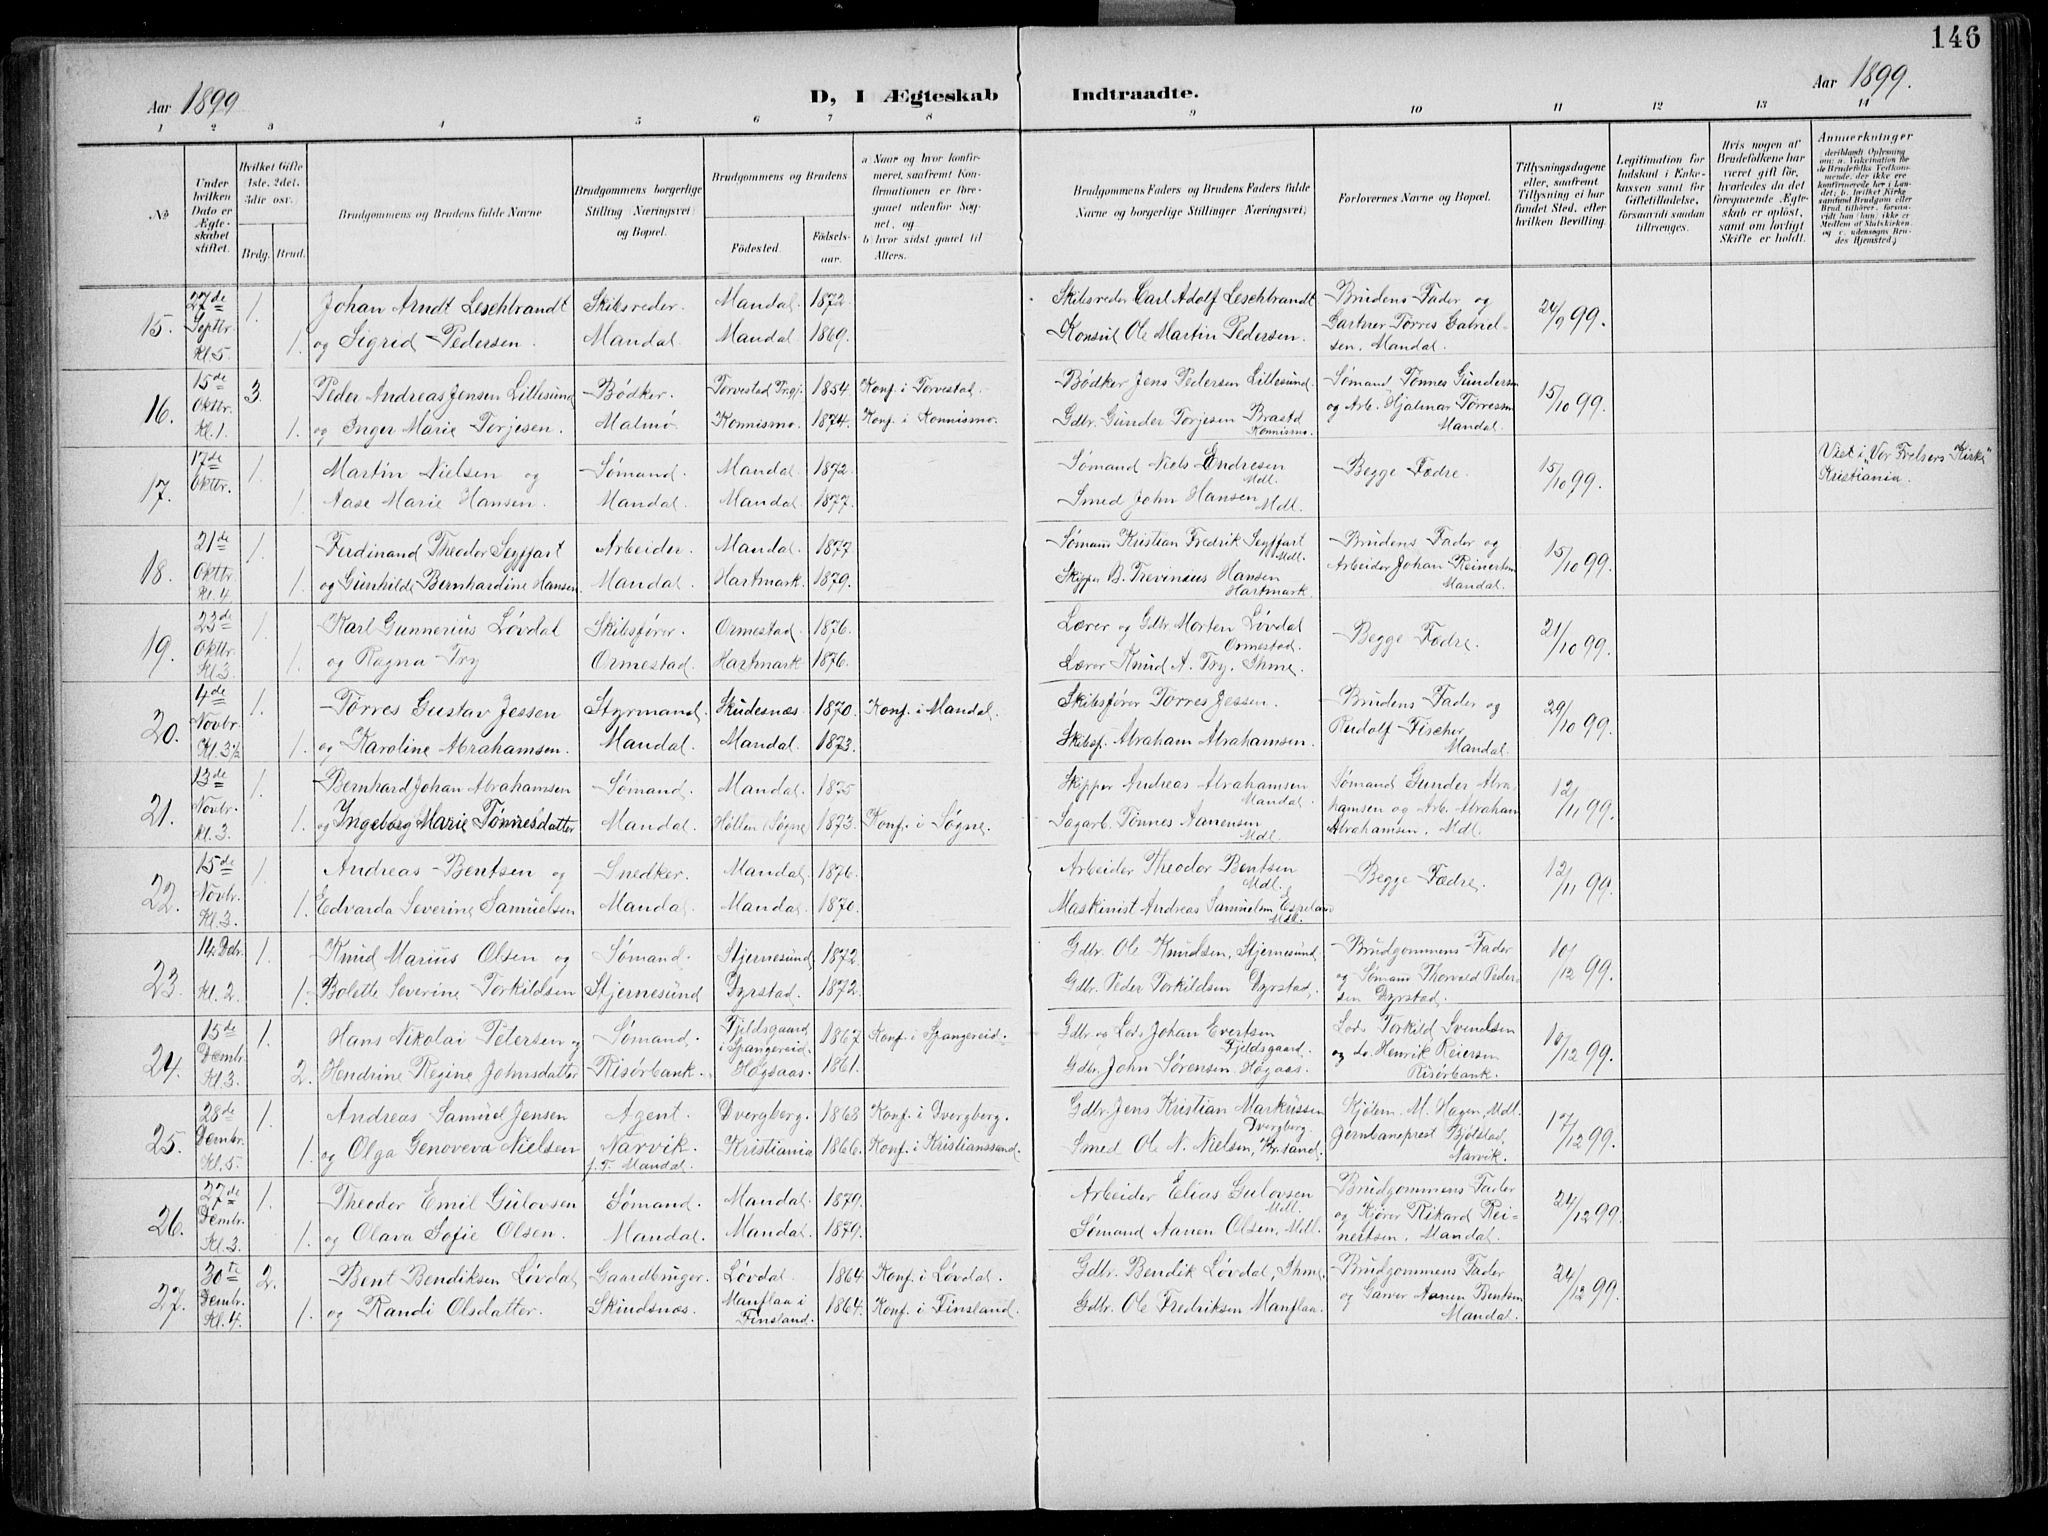 146
Aar 1899
D, I Ægteskab Indtraadte.
Aar 1899.
1 2 3 4 5 6 7 8 9 10 11 12 13 14
No
Under hvilken Dato er Ægteskabet stiftet.
Hvilket Gifte 1ste, 2det, 3die osv.
Brdg. Brud.
Brudgommens og Brudens fulde Navne
Brudgommens borgerlige Stilling (Næringsvei) og Bopæl.
Brudgommens og Brudens
Födested. Födselsaar.
a) Naar og hvor konfirmeret, saafremt Konfirmationen er foregaaet udenfor Sognet, og
b) hvor sidst gaaet til Alters.
Brudgommens Faders og Brudens Faders fulde Navne og borgerlige Stillinger (Næringsvei)
Forlovernes Navne og Bopæl.
Tillysningsdagene eller, saafremt Tillysning ei har fundet Sted, efter hvilken Bevilling.
Legitimation for Indskud i Enkekassen samt for Giftetilladelse, forsaavidt saadan tiltrænges.
Hvis nogen af Brudefolkene har været gift før, hvorledes da det foregaaende Ægteskab er opløst, samt om lovligt Skifte er holdt.
Anmærkninger
(deriblandt Oplysning om: a. Vakcination for de Brudefolks Vedkommende, der ikke ere konfirmerede her i Landet; b. hvilket Kirkesamfund Brudgom eller Brud tilhører, forsaavidt han (hun) ikke er Medlem af Statskirken og c. udensogns Brudes Hjemsted.)
15. 27de Septbr. Kl. 5 1. Johan Arndt Leschbrandt Skibsreder. Mandal. 1872. Skibsreder Carl Adolf Leschbrandt Brudens Fader og 24/9 99.
1. og Sigrid Pedersen. Mandal Mandal 1869. Konsul Ole Martin Pedersen. Gartner Tørres Gabrielsen. Mandal.
16. 15de Oktbr. Kl. 1. 3. Peder Andreas Jensen Lillesund Bødker. Torvestad Prgj. 1854. Konf. i Torvestad. Bødker Jens Pedersen Lillesund. Sømand Tønnes Gundersen 15/10 99.
1. og Inger Marie Torjesen. Malmø Konnismo. 1874. Konf. i Konnismo. Gdbr. Gunder Torjesen Brastd Konnismo. og Arb. Hjalmar Tørresen Mandal.
17. 17de Oktbr. 1. Martin Nielsen og Sømand. Mandal. 1872. Sømand Niels Endresen Mdl. Begge Fædre. 15/10 99. Viet i "Vor Frelsers Kirke"
1 Aase Marie Hansen. Mandal. Mandal. 1877. Smed John Hansen Mdl. Kristiania.
18. 21de Oktbr. Kl. 4 1. Ferdinand Theodor Seyffart Arbeider. Mandal. 1877. Sømand Kristian Fredrik Seyffart Mdl. Brudens Fader og 15/10 99.
1. og Gunhilde Bernhardine Hansen Mandal. Hartmark. 1879. Skipper B. Trevinius Hansen Hartmark. Arbeider Johan Reinertsen Mandal.
19. 23de Oktbr. Kl 3. 1. Karl Gunnerius Løvdal Skibsfører. Ormestad. 1876. Lærer og Gdbr Morten Løvdal Ormestad. Begge Fædre. 21/10 99.
1. og Ragna Try Ormestad. Hartmark 1876. Lærer Knud A. Try. Ihme.
20. 4de Novbr. Kl. 3½ 1. Tørres Gustav Jessen Styrmand. Skudesnæs. 1870. Konf. i Mandal. Skibsfører Tørres Jessen. Brudens Fader og 29/10 99.
1. og Karoline Abrahamsen. Mandal. Mandal. 1873. Skibsf. Abraham Abrahamsen. Rudolf Fischer Mandal.
21. 13de Novbr. Kl. 3. 1. Bernhard Johan Abrahamsen Sømand. Mandal. 1875 Skipper Andreas Abrahamsen Mandal. Sømand Gunder Abra- 12/11 99.
1. og Ingeborg Marie Tønnesdatter Mandal. Høllen i Søgne 1873. Konf. i Søgne. Sagarb. Tønnes Aanensen Mdl. hamsen og Arb. Abraham Abrahamsen. Mdl.
22. 15de Novbr. Kl 3. 1. Andreas Bentsen og Snedker. Mandal. 1876. Arbeider Theodor Bentsen Mdl. Begge Fædre. 12/11 99.
1. Edvarda Severine Samuelsen Mandal. Mandal. 1870. Maskinist Andreas Samuelsen Espeland Mdl.
23. 14 Dcbr. Kl. 2 1. Knud Marius Olsen og Sømand. Stjernesund 1872. Gdbr. Ole Knudsen, Stjernesund. Brudgommens Fader 10/12 99.
1. Bolette Severine Torkildsen Stjernesund Dyrstad. 1872. Gdbr. Peder Torkildsen Dyrstad. og Sømand Thorvald Pedersen Dyrstad.
24. 15de Dcmbr. Kl 3. 1. Hans Nikolai Petersen og Sømand. Fjeldsgaard i Spangereid. 1867. Konf. i Spangereid. Gdbr og Lods Johan Evertsen Fjeldsgaard. Lods Torkild Svendsen 10/12 99.
2. Hendrine Regine Johnsdatter Risørbank. Høgsaas. 1861. Gdbr. John Sørensen Høgaas. og do. Henrik Reiersen Risørbank.
25. 28de Dcmbr. Kl. 5. 1. Andreas Samuel Jensen Agent. Dvergberg. 1868 Konf. i Dvergberg. Gdbr. Jens Kristian Markussen Dvergberg. Kjøbm. M. Hagen, Mdl. 17/12 99.
1. og Olga Genoveva Nielsen Narvik. f. T. Mandal. Kristiania 1866. Konf. i Kristianssand. Smed Ole N. Nielsen, Krsand. Jernbaneprest Bjølstad, Narvik.
26. 27de Dcmbr. Kl. 3. 1. Theodor Emil Gulovsen Sømand. Mandal. 1879. Arbeider Elias Gulovsen Mdl. Brudgommens Fader 24/12 99.
1. og Olava Sofie Olsen. Mandal. Mandal. 1879. Sømand Aanen Olsen, Mdl. og Kjører Rikard Reinertsen. Mandal.
27. 30te Dcmbr. Kl. 4. 2. Bent Bendiksen Løvdal Gaardbruger. Løvdal. 1864. Konf. i Løvdal. Gdbr. Bendik Løvdal, Ihme. Brudgommens Fader 24/12 99.
1. og Randi Olsdatter. Skindsnæs. Manflaa i Finsland. 1864. Konf. i Finsland. Gdbr. Ole Fredriksen Manflaa. og Garver Aanen Bentsen Mandal.